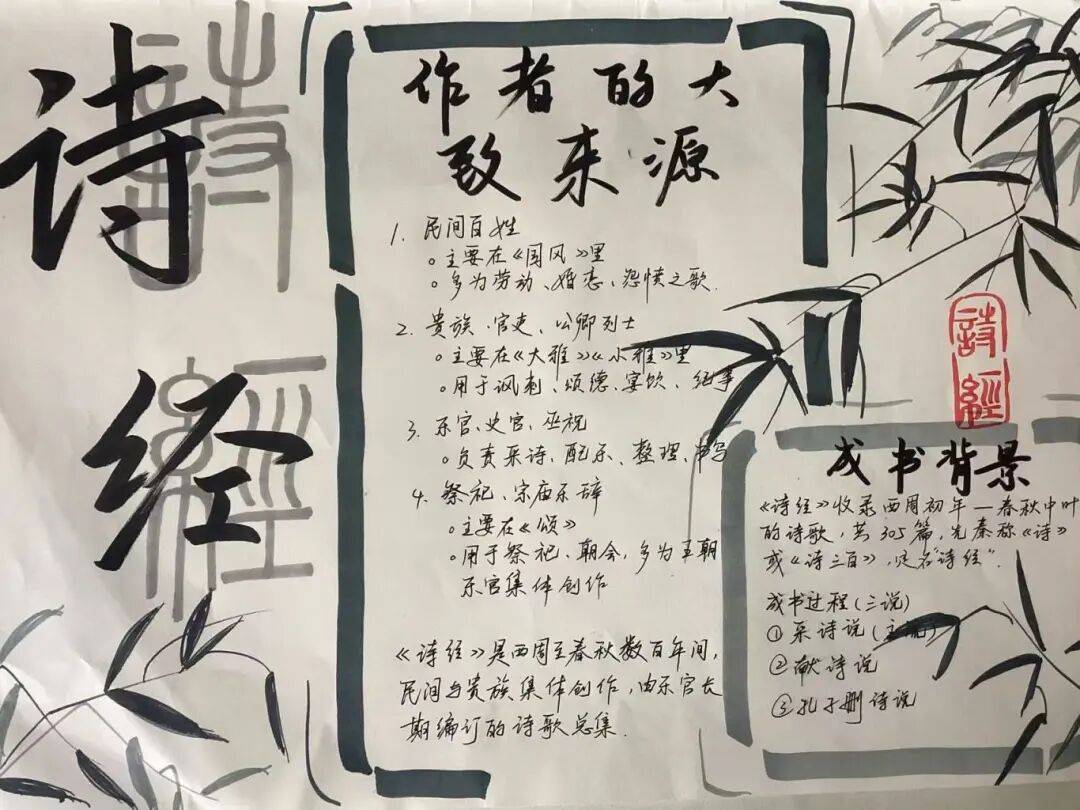 诗
经
詩
經
作者的大
致来源
1. 民间百姓
。主要在《国风》里
。多为劳动、婚恋、怨愤之歌.
2. 贵族、官吏、公卿列士
。主要在《大雅》《小雅》里
。用于讽刺、颂德、宴饮、纪事
3. 乐官、史官、巫祝
。负责采诗、配乐、整理、书写
4. 祭祀、宗庙乐辞
。主要在《颂》
。用于祭祀、朝会,多为王朝
乐官集体创作
《诗经》是西周至春秋数百年间,
民间与贵族集体创作,由乐官长
期编订的诗歌总集.
詩
經
成书背景
《诗经》收录西周初年—春秋中叶
的诗歌,共305篇,先秦称《诗》
或《诗三百》,定名"诗经".
成书过程(三说)
①采诗说(主流)
②献诗说
③孔子删诗说